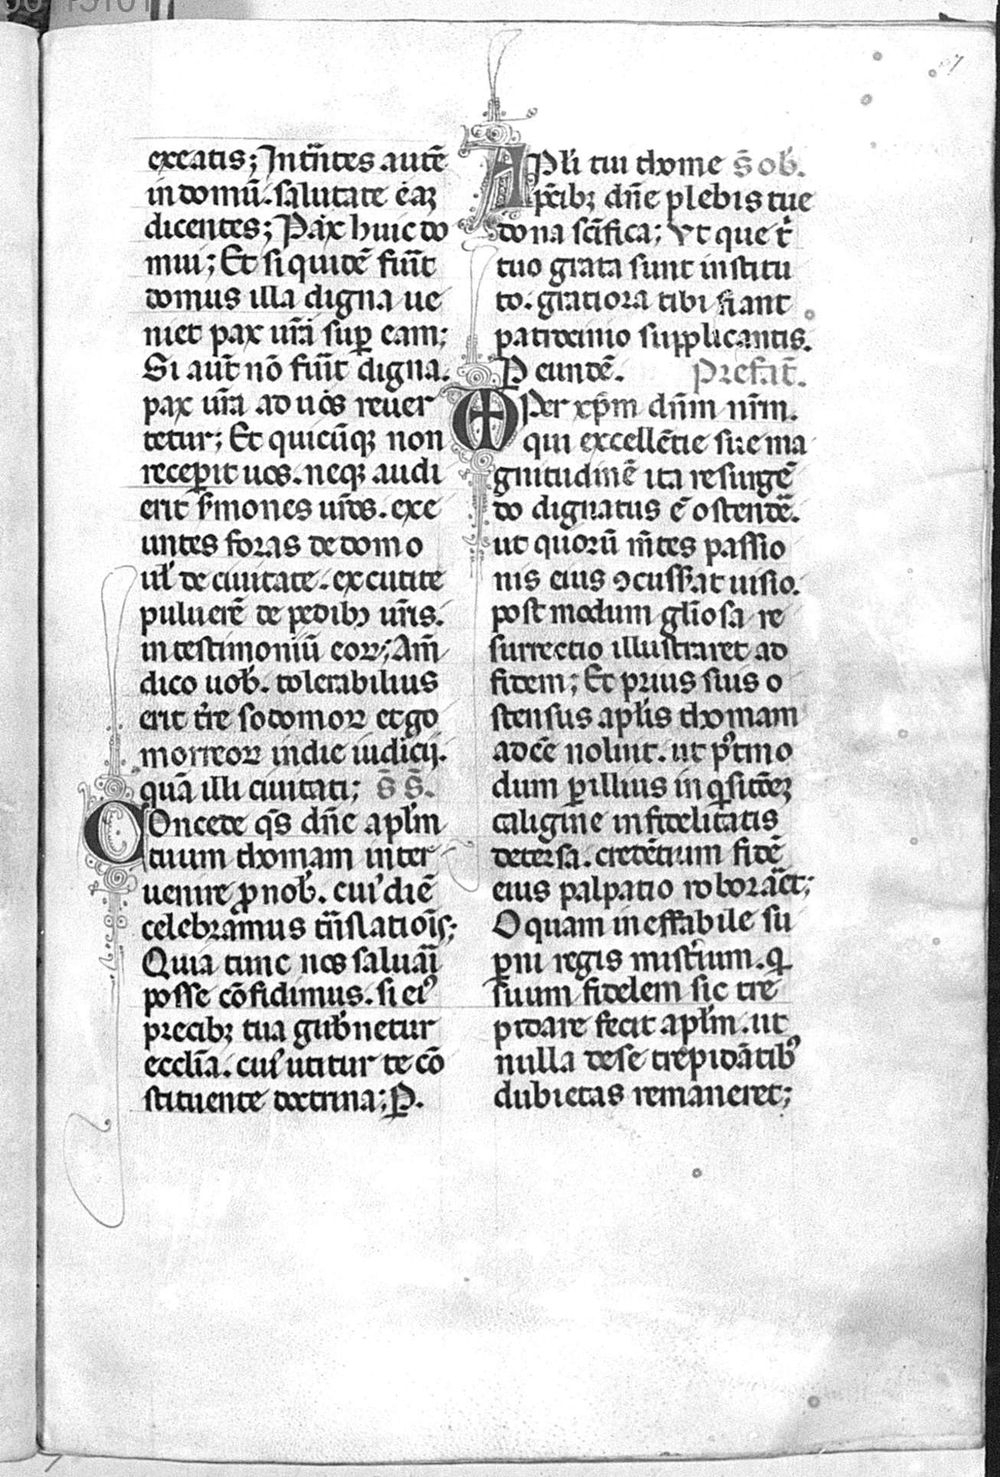 exeatis; Int̄ntes autē
in domū. salutate eaꝫ
dicentes; Pax huic do
mui; Et siquidē fūit
domus illa digna ue
niet pax ur̄a suꝑ eam;
Si aut̄ nō fūit digna.
pax ur̄a ad uos reuer
tetur; Et quicūqꝫ non
receꝑit uos. neqꝫ audi
erit s̄mones ur̄os. exe
untes foras de domo
ul̄ de ciuitate. excutite
puluerē de pedibꝫ ur̄is.
in testimoniū eoꝝ; Am̄
dico uob̄. tolerabilius
erit t̄re sodomoꝝ et go
morreoꝝ in die iudicij.
quā illi ciuitati; s̄ s̄.
Concede q̄s dn̄e apl̄m
tuum thomam inter
uenire ꝓ nob̄. cuiꝰ diē
celebramus tn̄slatiōis;
Quia tunc nos saluāi
posse cōfidimus. si eiꝰ
precibꝫ tua gub̄netur
eccl̄ia. cuiꝰ utitur te cō
stituente doctrina; P̱.
APl̄i tui thome s̄ ob̄.
p̄cibꝫ dn̄e plebis tue
dona sc̄ifica; Vt que t̄
tuo grata sunt institu
to. gratiora tibi fiant
patrocinio supplicantis.
P eundē. Prefat̄.
Per xp̄m dn̄m nr̄m.
qui excellētie sue ma
gnitudinē ita resurgē
do dignatus ē ostendē.
ut quorū m̄tes passio
nis eius ↄcussat uisio.
postmodum gl̄iosa re
surrectio illustraret ad
fidem; Et prius suis o
stensus apl̄is thomam
adcē noluit. ut pꝰtmo
dum ꝑ illius inq̄sitōeꝫ
caligine infidelitatis
detersa. credētium fidē
eius palpatio roborāet;
O quam ineffabile su
ꝑni regis mist̄ium. ꝙ
suum fidelem sic tre
pidare fecit apl̄m. ut
nulla de se trepidātibꝰ
dubietas remaneret;